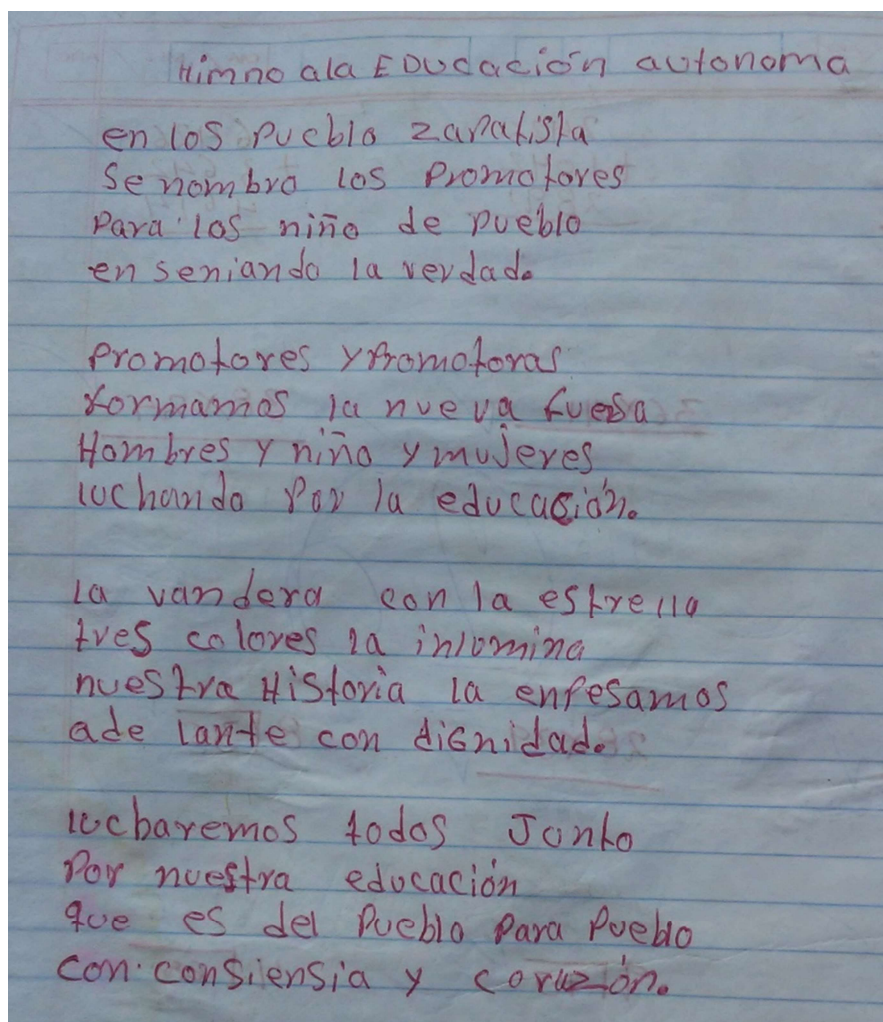 Himno ala EDUCación autonoma
en los pueblo zapatista
se nombro los promotores
para los niño de pueblo
en seniando la verdad.
promotores y promotoras
formamos la nueva fuersa
Hombres y niño y mujeres
luchando por la educación.
la vandera con la estrella
tres colores la inlomina
nuestra Historia la enpesamos
ade lante con dignidad.
lucharemos todos Junto
por nuestra educación
que es del pueblo para pueblo
con consiensia y corazón.